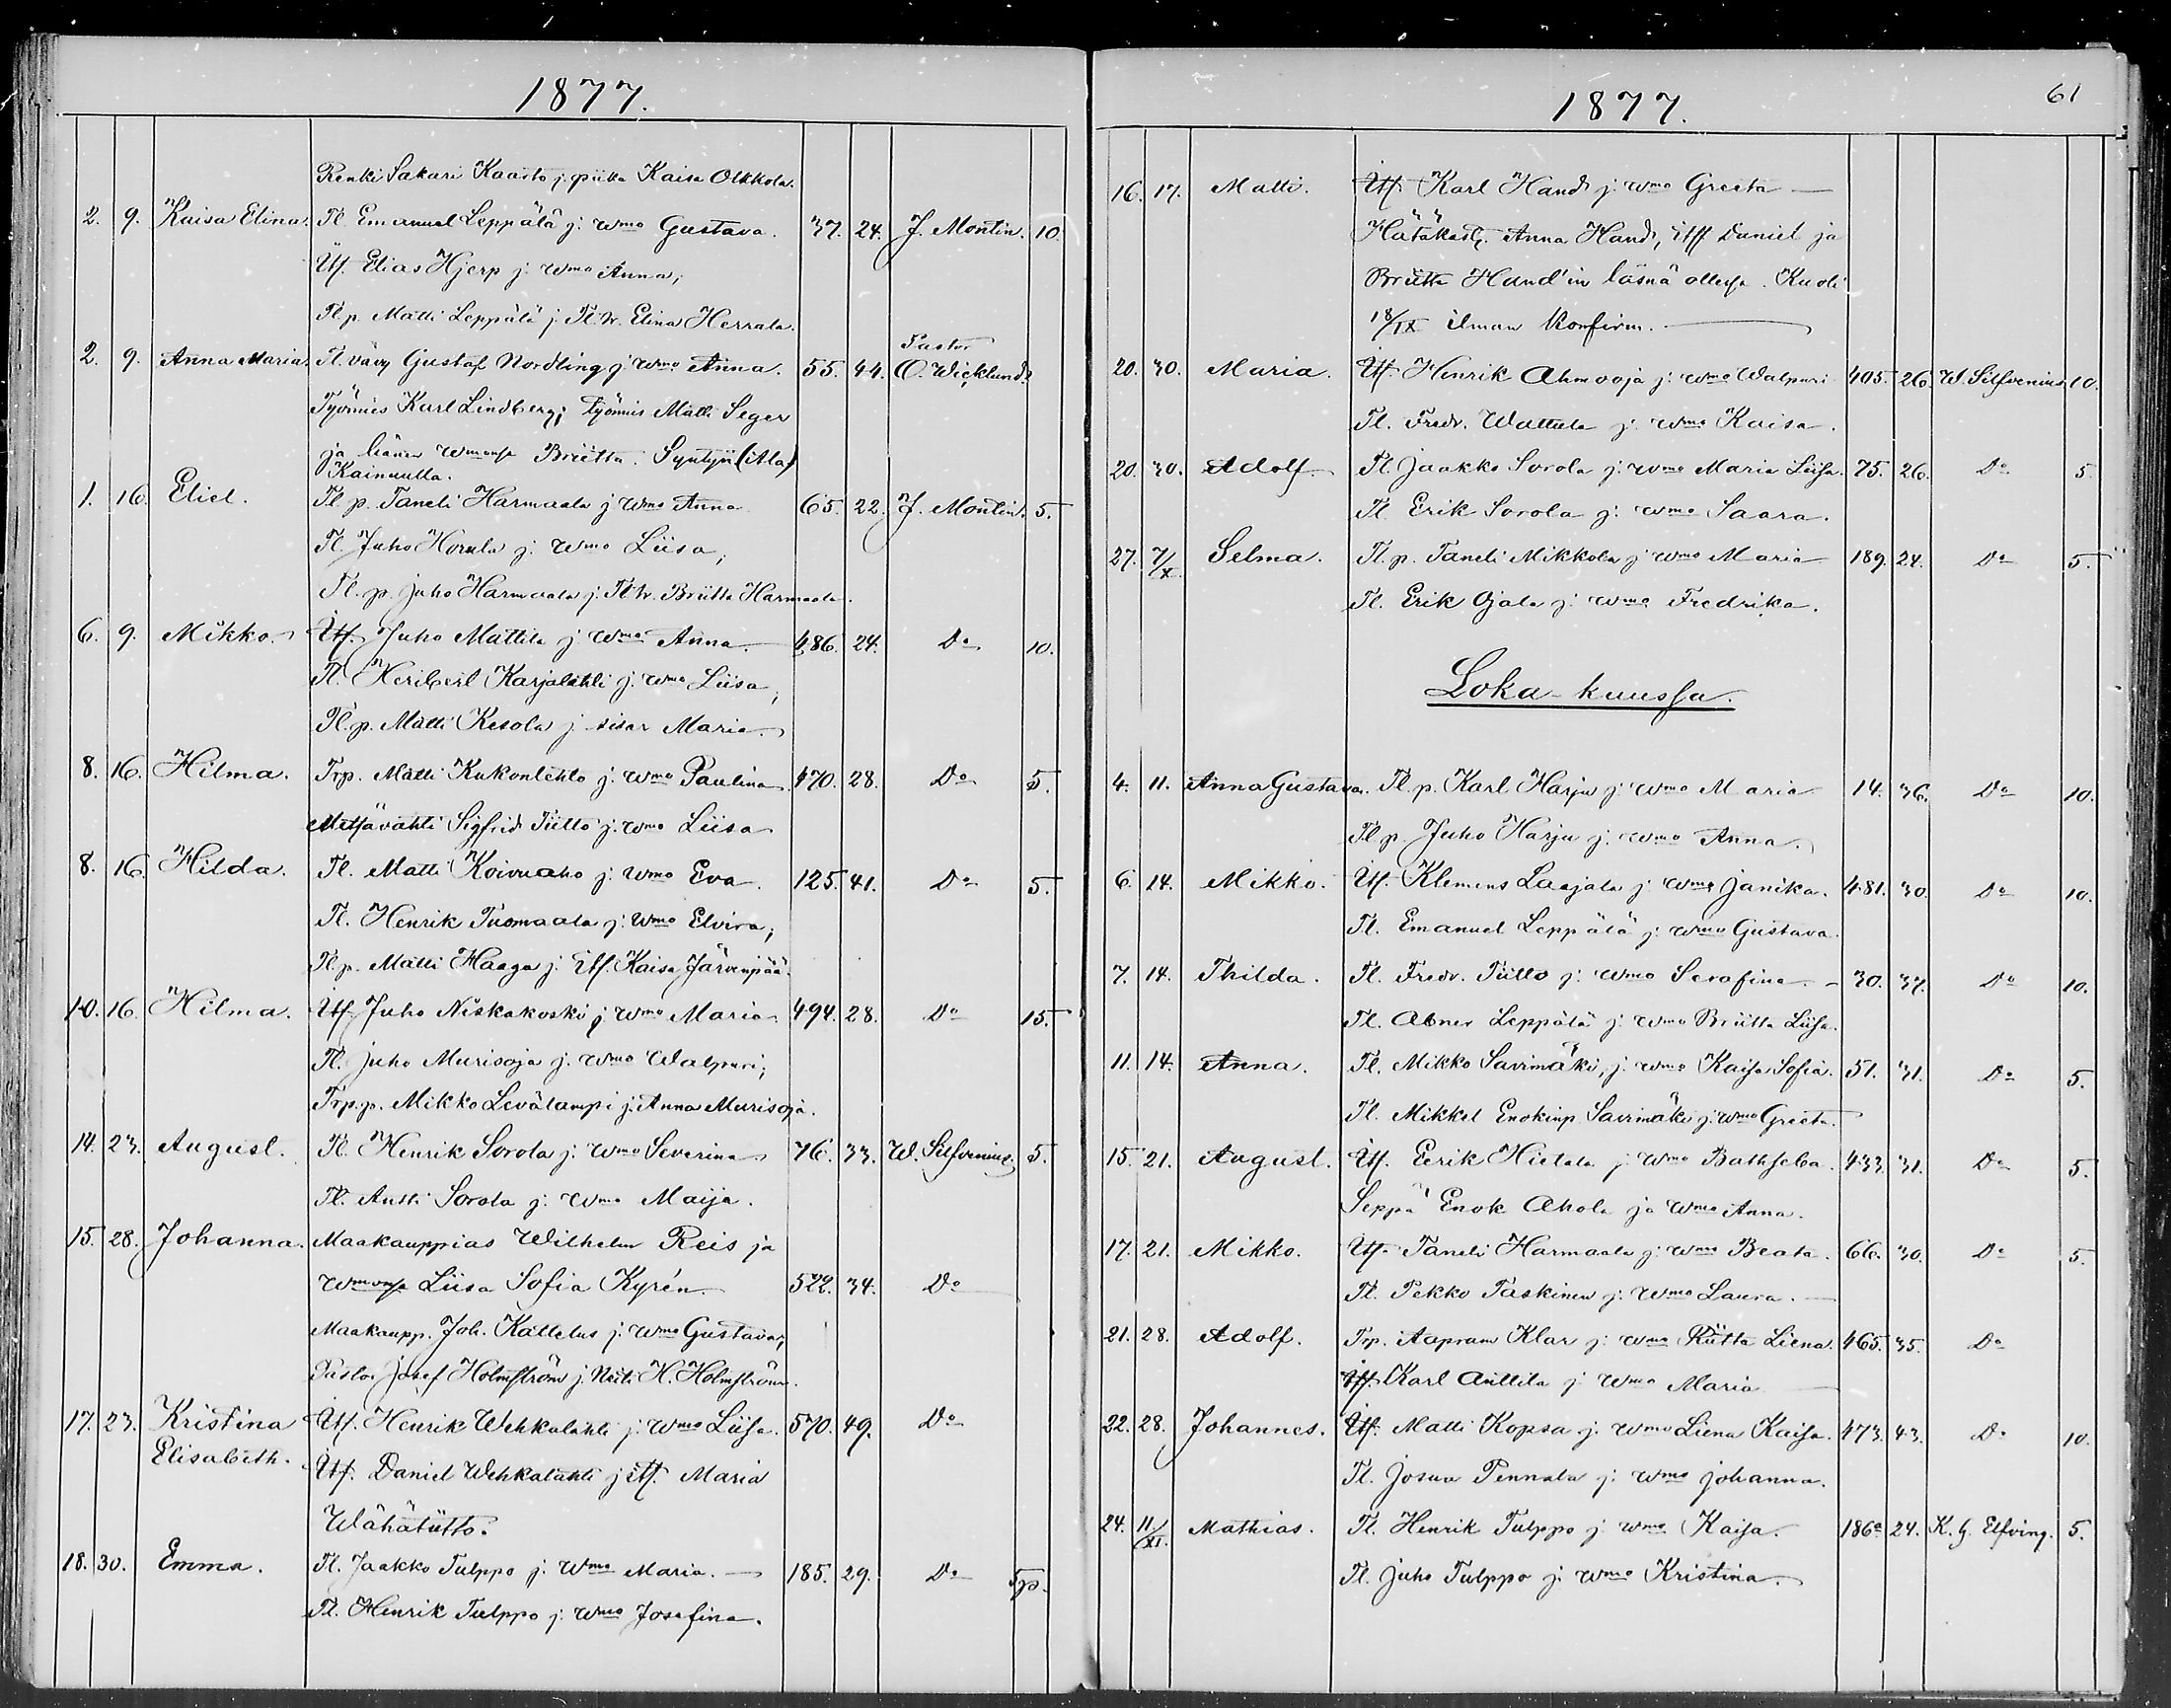 1877.
Renki Sakari Kaasto j. piika Kaisa Olkkola.
2. 9. Kaisa Elina. Tl. Emanuel Leppälä j. Wmo Gustava. 37. 24. J. Montin. 10.
Itf. Elias Hjerp j. Wmo Anna;
Tl. p. Matti Leppälä j. Tl. tr. Elina Herrala.
Pastor
2. 9. Anna Maria. Tl. vävy Gustaf Nordling j. Wmo Anna. 55. 44. O. Wicklund.
Työmies Karl Lindberg; Työmies Matti Seger
ja hänen Wmonsa Briitta. Syntyji (Ala)
Kainuulla.
1. 16. Eliel. Tl. p. Taneli Harmaala j. Wmo Anna 65. 22. J. Montin. 5.
Tl. Juho Horula j. Wmo Liisa;
Tl. p. Juho Harmaala j. Tl. tr. Briitta Harmaala.
6. 9. Mikko. Itf. Juho Mattila j. Wmo Anna. 486. 24. Do 10.
Tl. Heribert Karjalahti j. Wmo Liisa;
Tl. p. Matti Kesola j. sisar Maria.
8. 16. Hilma. Trp. Matti Kukonlehto j. Wmo Paulina. 470. 28. Do 5.
Metsävahti Sigfrid Tiitto j. Wmo Liisa
8. 16. Hilda. Tl. Matti Koivuaho j. Wmo Eva. 125. 41. Do 5.
Tl. Henrik Tuomaala j. Wmo Elvira;
Tl. p. Matti Haaga j. Itf. Kaisa Järvenpää.
10. 16. Hilma. Itf. Juho Niskakoski j. Wmo Maria 494. 28. Do 15.
Tl. Juho Murisoja j. Wmo Walpuri;
Trp. p. Mikko Levälampi j. Anna Murisoja.
14. 23. August. Tl. Henrik Sorola j. Wmo Severina 76. 33. W. Silfvenius. 5.
Tl. Antti Sorola j. Wmo Maija.
15. 28. Johanna. Maakauppias Wilhelm Reis ja
Wmonsa Liisa Sofia Kyrén. 522. 34. Do
Maakaupp. Joh. Kattelus j. Wmo Gustava;
Pastor Josef Holmström j. Neiti H. Holmström.
17. 23. Kristina Itf. Henrik Wehkalahti j. Wmo Liisa. 570. 49. Do
Elisabeth. Itf. Daniel Wehkalahti j. itf. Maria
Wähätiitto.
18. 30. Emma. Tl. Jaakko Tulppo j. Wmo Maria. 185. 29. Do 5p.
Tl. Henrik Tulppo j. Wmo Josefina.
1877. 61
16. 17. Matti. Itf. Karl Hand j. Wmo Greeta
Hätäkast. Anna Hand, itff Daniel ja
Briitta Hand'in läsnä ollessa. Kuoli
18/IX ilman konfirm.
20. 30. Maria. Itf. Henrik Ahmooja j. Wmo Walpuri 405. 26. W. Silfvenius 10.
Tl. Fredr. Wattula j. Wmo Kaisa.
20. 30. Adolf. Tl. Jaakko Sorola j. Wmo Maria Liisa. 75. 26. Do 5.
Tl. Erik Sorola j. Wmo Saara.
27. 7/X. Selma. Tl. p. Taneli Mikkola j. Wmo Maria 189. 24. Do 5.
Tl. Erik Ojala j. Wmo Fredrika.
Loka-kuussa.
4. 11. Anna Gustava. Tl. p. Karl Harju j. Wmo Maria 14. 36. Do 10.
Tl. p. Juho Harju j. Wmo Anna.
6. 14. Mikko. Itf. Klemens Laajala j. Wmo Janika. 481. 30. Do 10.
Tl. Emanuel Leppälä j. Wmo Gustava.
7. 14. Thilda. Tl. Fredr. Tiitto j. Wmo Serafina. 30. 37. Do 10.
Tl. Abner Leppälä j. Wmo Briitta Liisa.
11. 14. Anna. Tl. Mikko Savimäki, j. Wmo Kaisa Sofia. 51. 31. Do 5.
Tl. Mikkel Enokinp. Savimäki j. Wmo Greeta.
15. 21. August. Itf. Eerik Hietala j. Wmo Bathseba. 433. 31. Do 5.
Seppä Enok Ahola ja Wmo Anna.
17. 21. Mikko. Itf. Taneli Harmaala j. Wmo Beata. 66. 30. Do 5.
Tl. Pekko Paskinen j. Wmo Laura.
21. 28. Adolf. Trp. Aapram Klar j. Wmo Riitta Liena. 465. 35. Do
Itf. Karl Anttila j. Wmo Maria
22. 28. Johannes. Itf. Matti Kopsa j. Wmo Liena Kaisa. 473. 43. Do 10.
Tl. Josua Pennala j. Wmo Johanna.
24. 11/XI. Mathias. Tl. Henrik Tulppo j. Wmo Kaisa. 186a 24. K. G. Elfving. 5.
Tl. Juho Tulppo j. Wmo Kristina.